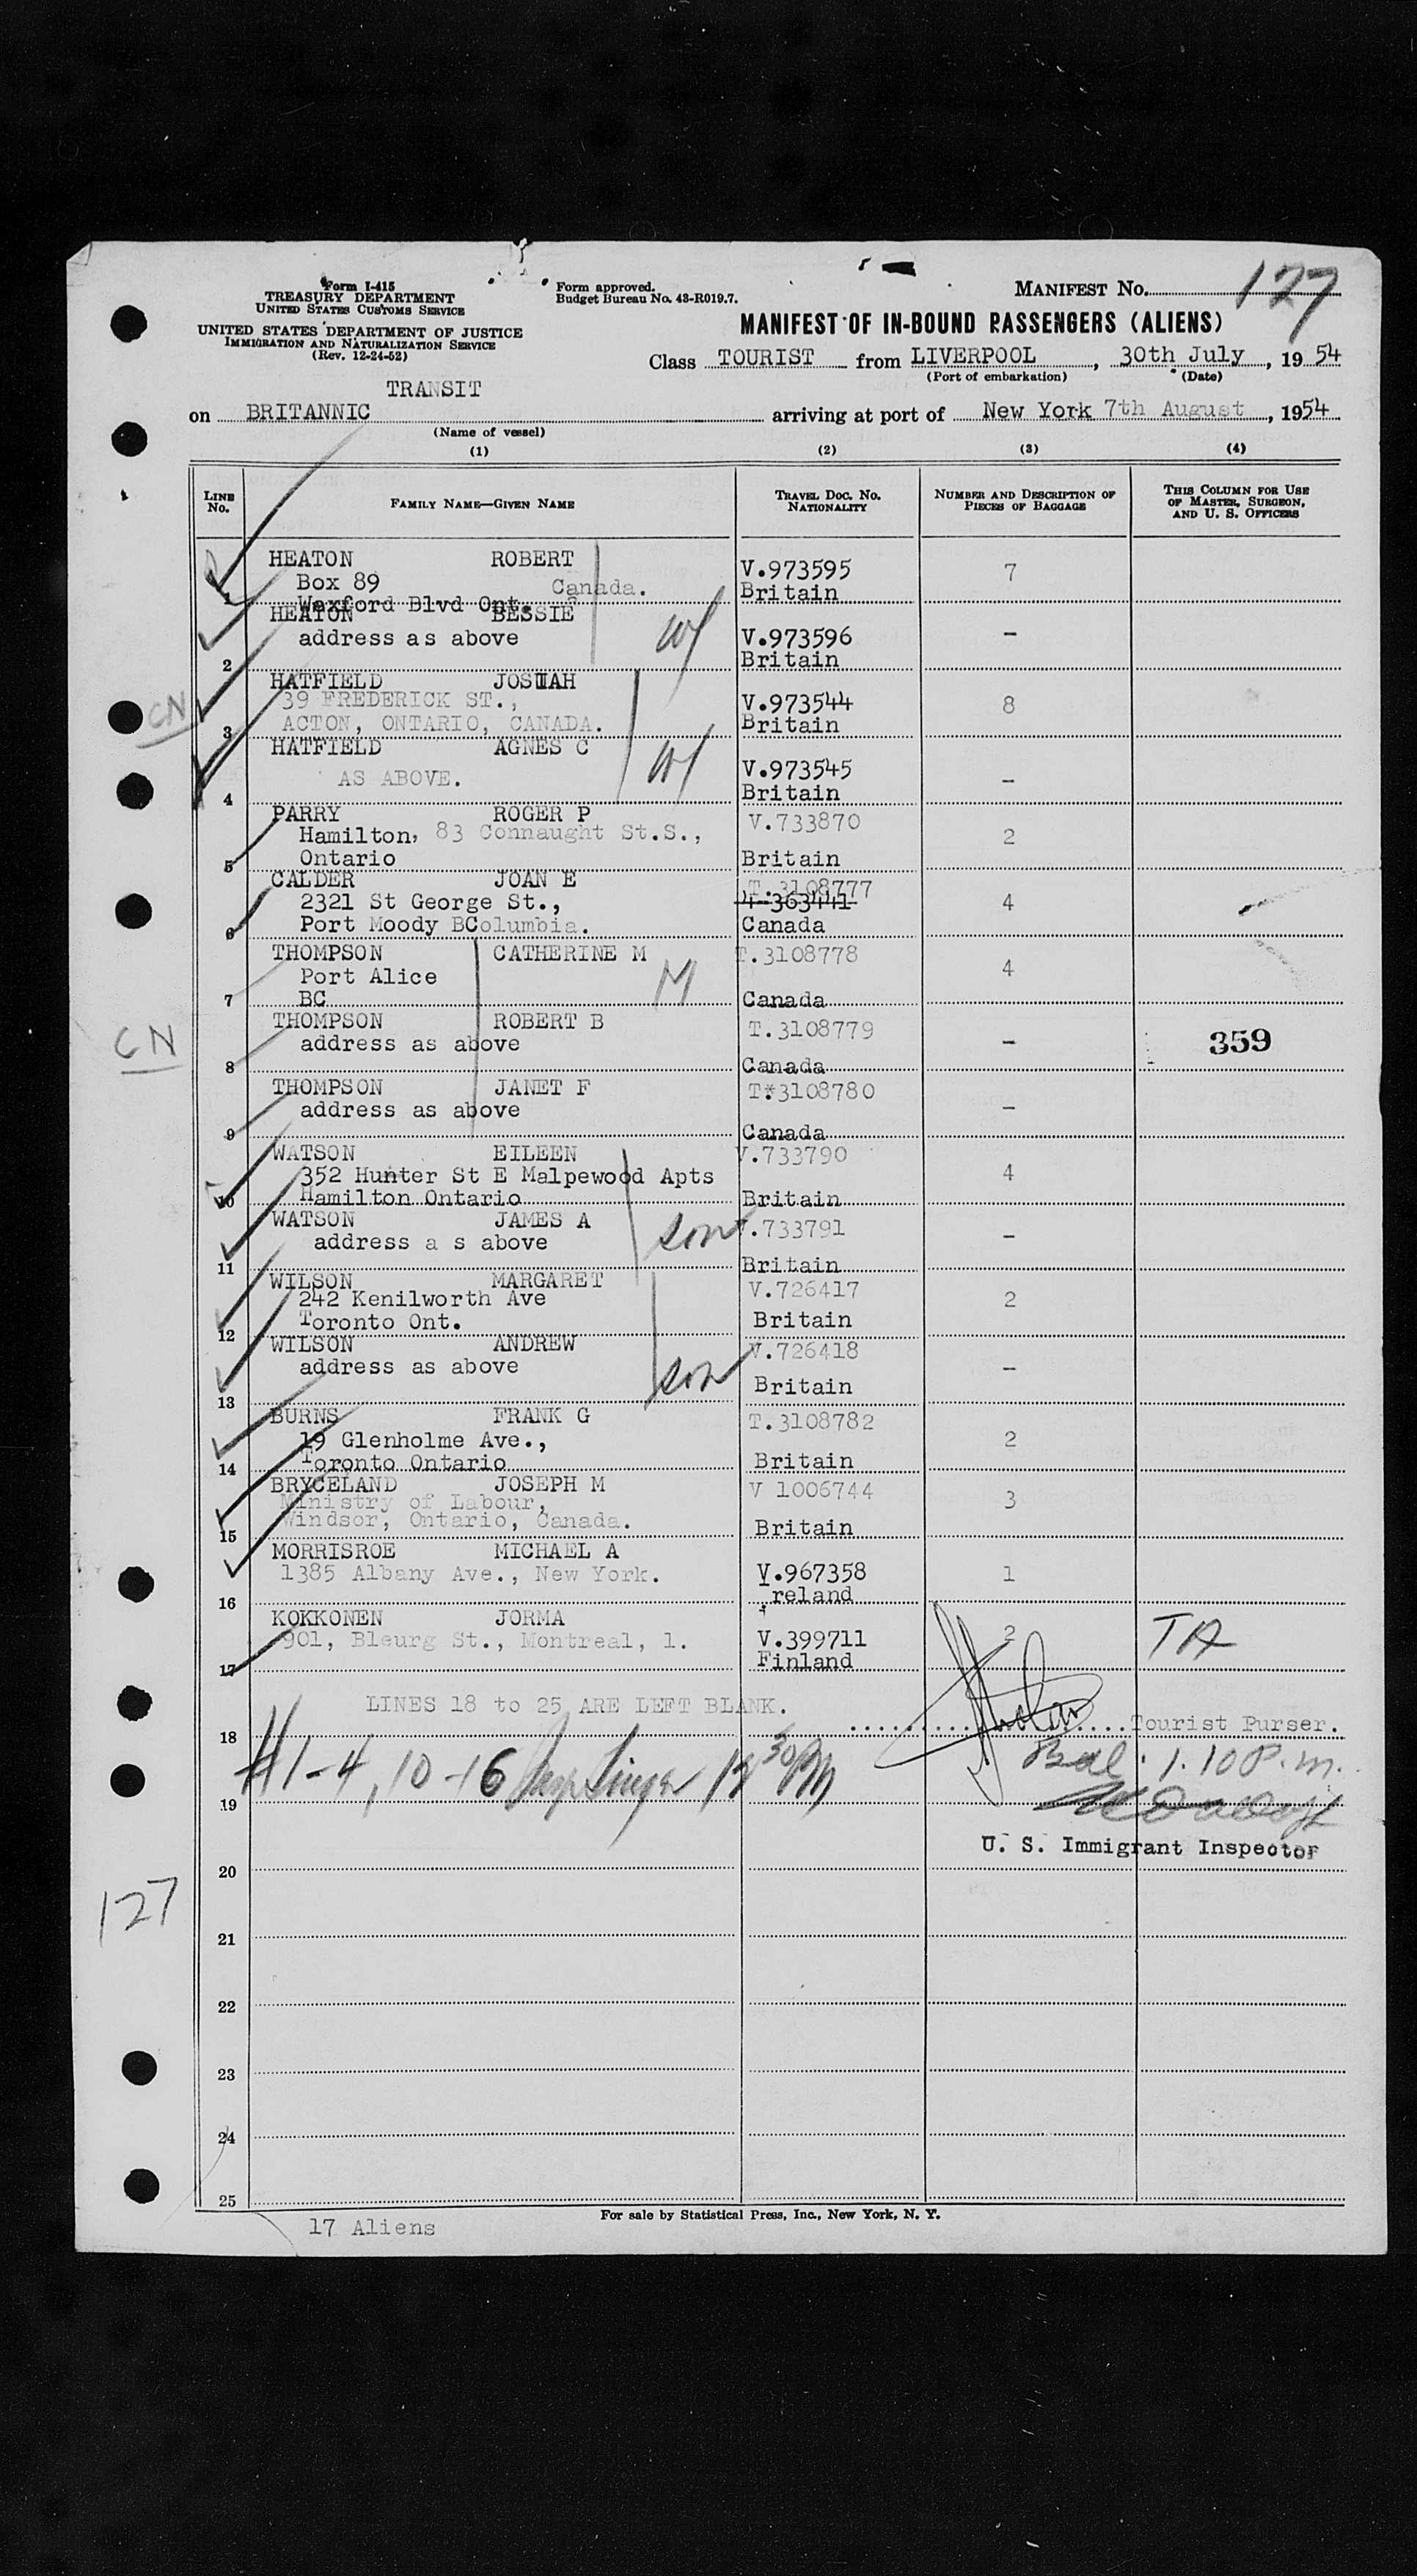 Form I-415
TREASURY DEPARTMENT
UNITED STATES CUSTOMS SERVICE
UNITED STATES DEPARTMENT OF JUSTICE
IMMIGRATION AND NATURALIZATION SERVICE
(Rev. 12-24-52)
Form approved.
Budget Bureau No. 43-R019.7.
MANIFEST No. 127
MANIFEST OF IN-BOUND PASSENGERS (ALIENS)
Class TOURIST from LIVERPOOL, 30th July, 1954
(Port of embarkation) (Date)
TRANSIT
on BRITANNIC arriving at port of New York 7th August, 1954
(Name of vessel)
(1) (2) (3) (4)
LINE No.
FAMILY NAME—GIVEN NAME
TRAVEL DOC. NO. NATIONALITY
NUMBER AND DESCRIPTION OF PIECES OF BAGGAGE
THIS COLUMN FOR USE OF MASTER, SURGEON, AND U. S. OFFICERS
HEATON ROBERT V.973595 7
Box 89 Canada. Britain
Wexford Blvd Ont.
HEATON BESSIE
address as above W V.973596 –
2 Britain
HATFIELD JOSIAH
39 FREDERICK ST., V.973544 8
CN
3 ACTON, ONTARIO, CANADA. Britain
HATFIELD AGNES C
AS ABOVE. W V.973545 –
4 Britain
PARRY ROGER P V.733870
Hamilton, 83 Connaught St.S., 2
5 Ontario Britain
CALDER JOAN E T.3108777
2321 St George St., 363441 4
6 Port Moody BColumbia. Canada
THOMPSON CATHERINE M T.3108778
Port Alice M 4
7 BC Canada
THOMPSON ROBERT B T.3108779
CN address as above – 359
8 Canada
THOMPSON JANET F T*3108780
address as above –
9 Canada
WATSON EILEEN V.733790
352 Hunter St E Malpewood Apts 4
10 Hamilton Ontario Britain
WATSON JAMES A son V.733791
address a s above –
11 Britain
WILSON MARGARET V.726417
242 Kenilworth Ave 2
12 Toronto Ont. Britain
WILSON ANDREW V.726418
address as above son –
13 Britain
BURNS FRANK G T.3108782
19 Glenholme Ave., 2
14 Toronto Ontario Britain
BRYCELAND JOSEPH M V 1006744
Ministry of Labour, 3
15 Windsor, Ontario, Canada. Britain
MORRISROE MICHAEL A
1385 Albany Ave., New York. V.967358 1
16 Ireland
KOKKONEN JORMA
901, Bleurg St., Montreal, 1. V.399711 2 TA
17 Finland
LINES 18 to 25 ARE LEFT BLANK.
18 Tourist Purser.
#1-4, 10-16 12 30 PM Bal. 1.10 P.m.
19
U. S. Immigrant Inspector
20
127
21
22
23
24
25
For sale by Statistical Press, Inc., New York, N. Y.
17 Aliens